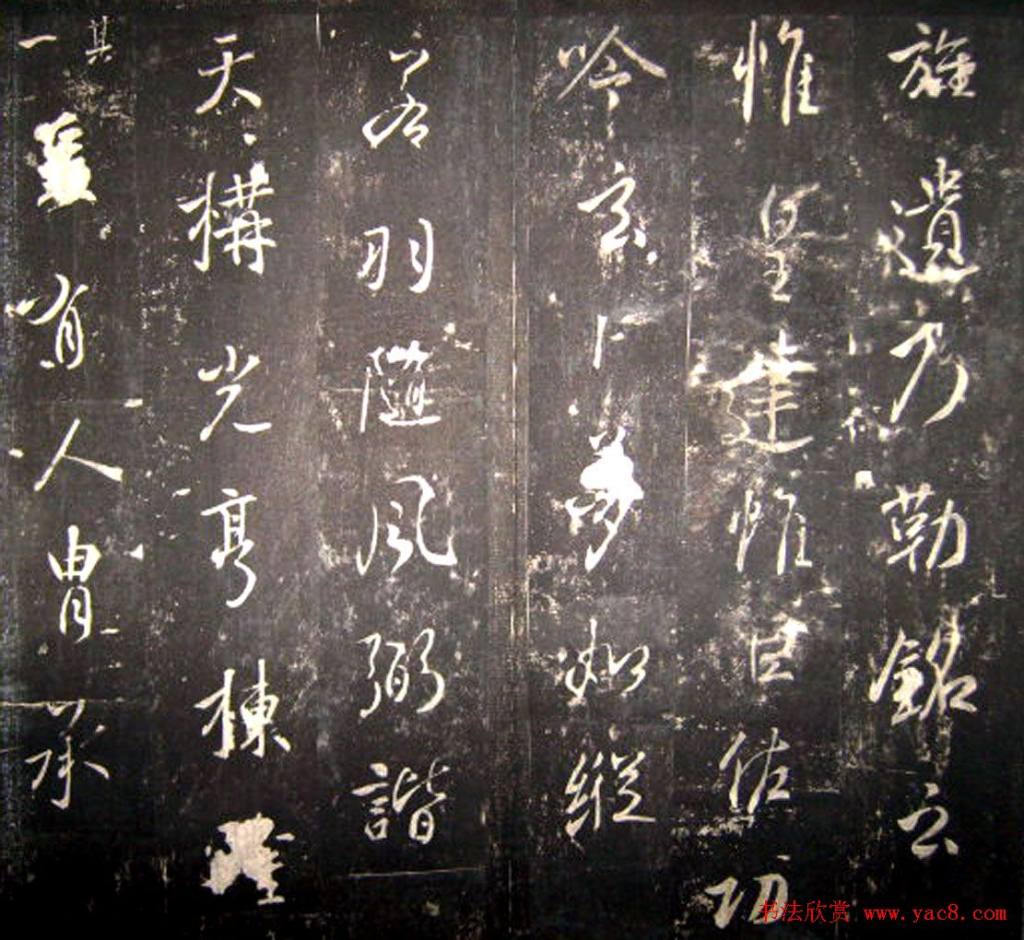 旌遺方勒銘云
惟皇建惟臣佐功
吟玄卜夢如縱
若羽隨風弼諧
天構光亨棟隆
其一人胄承
书法欣赏 www.yac8.com